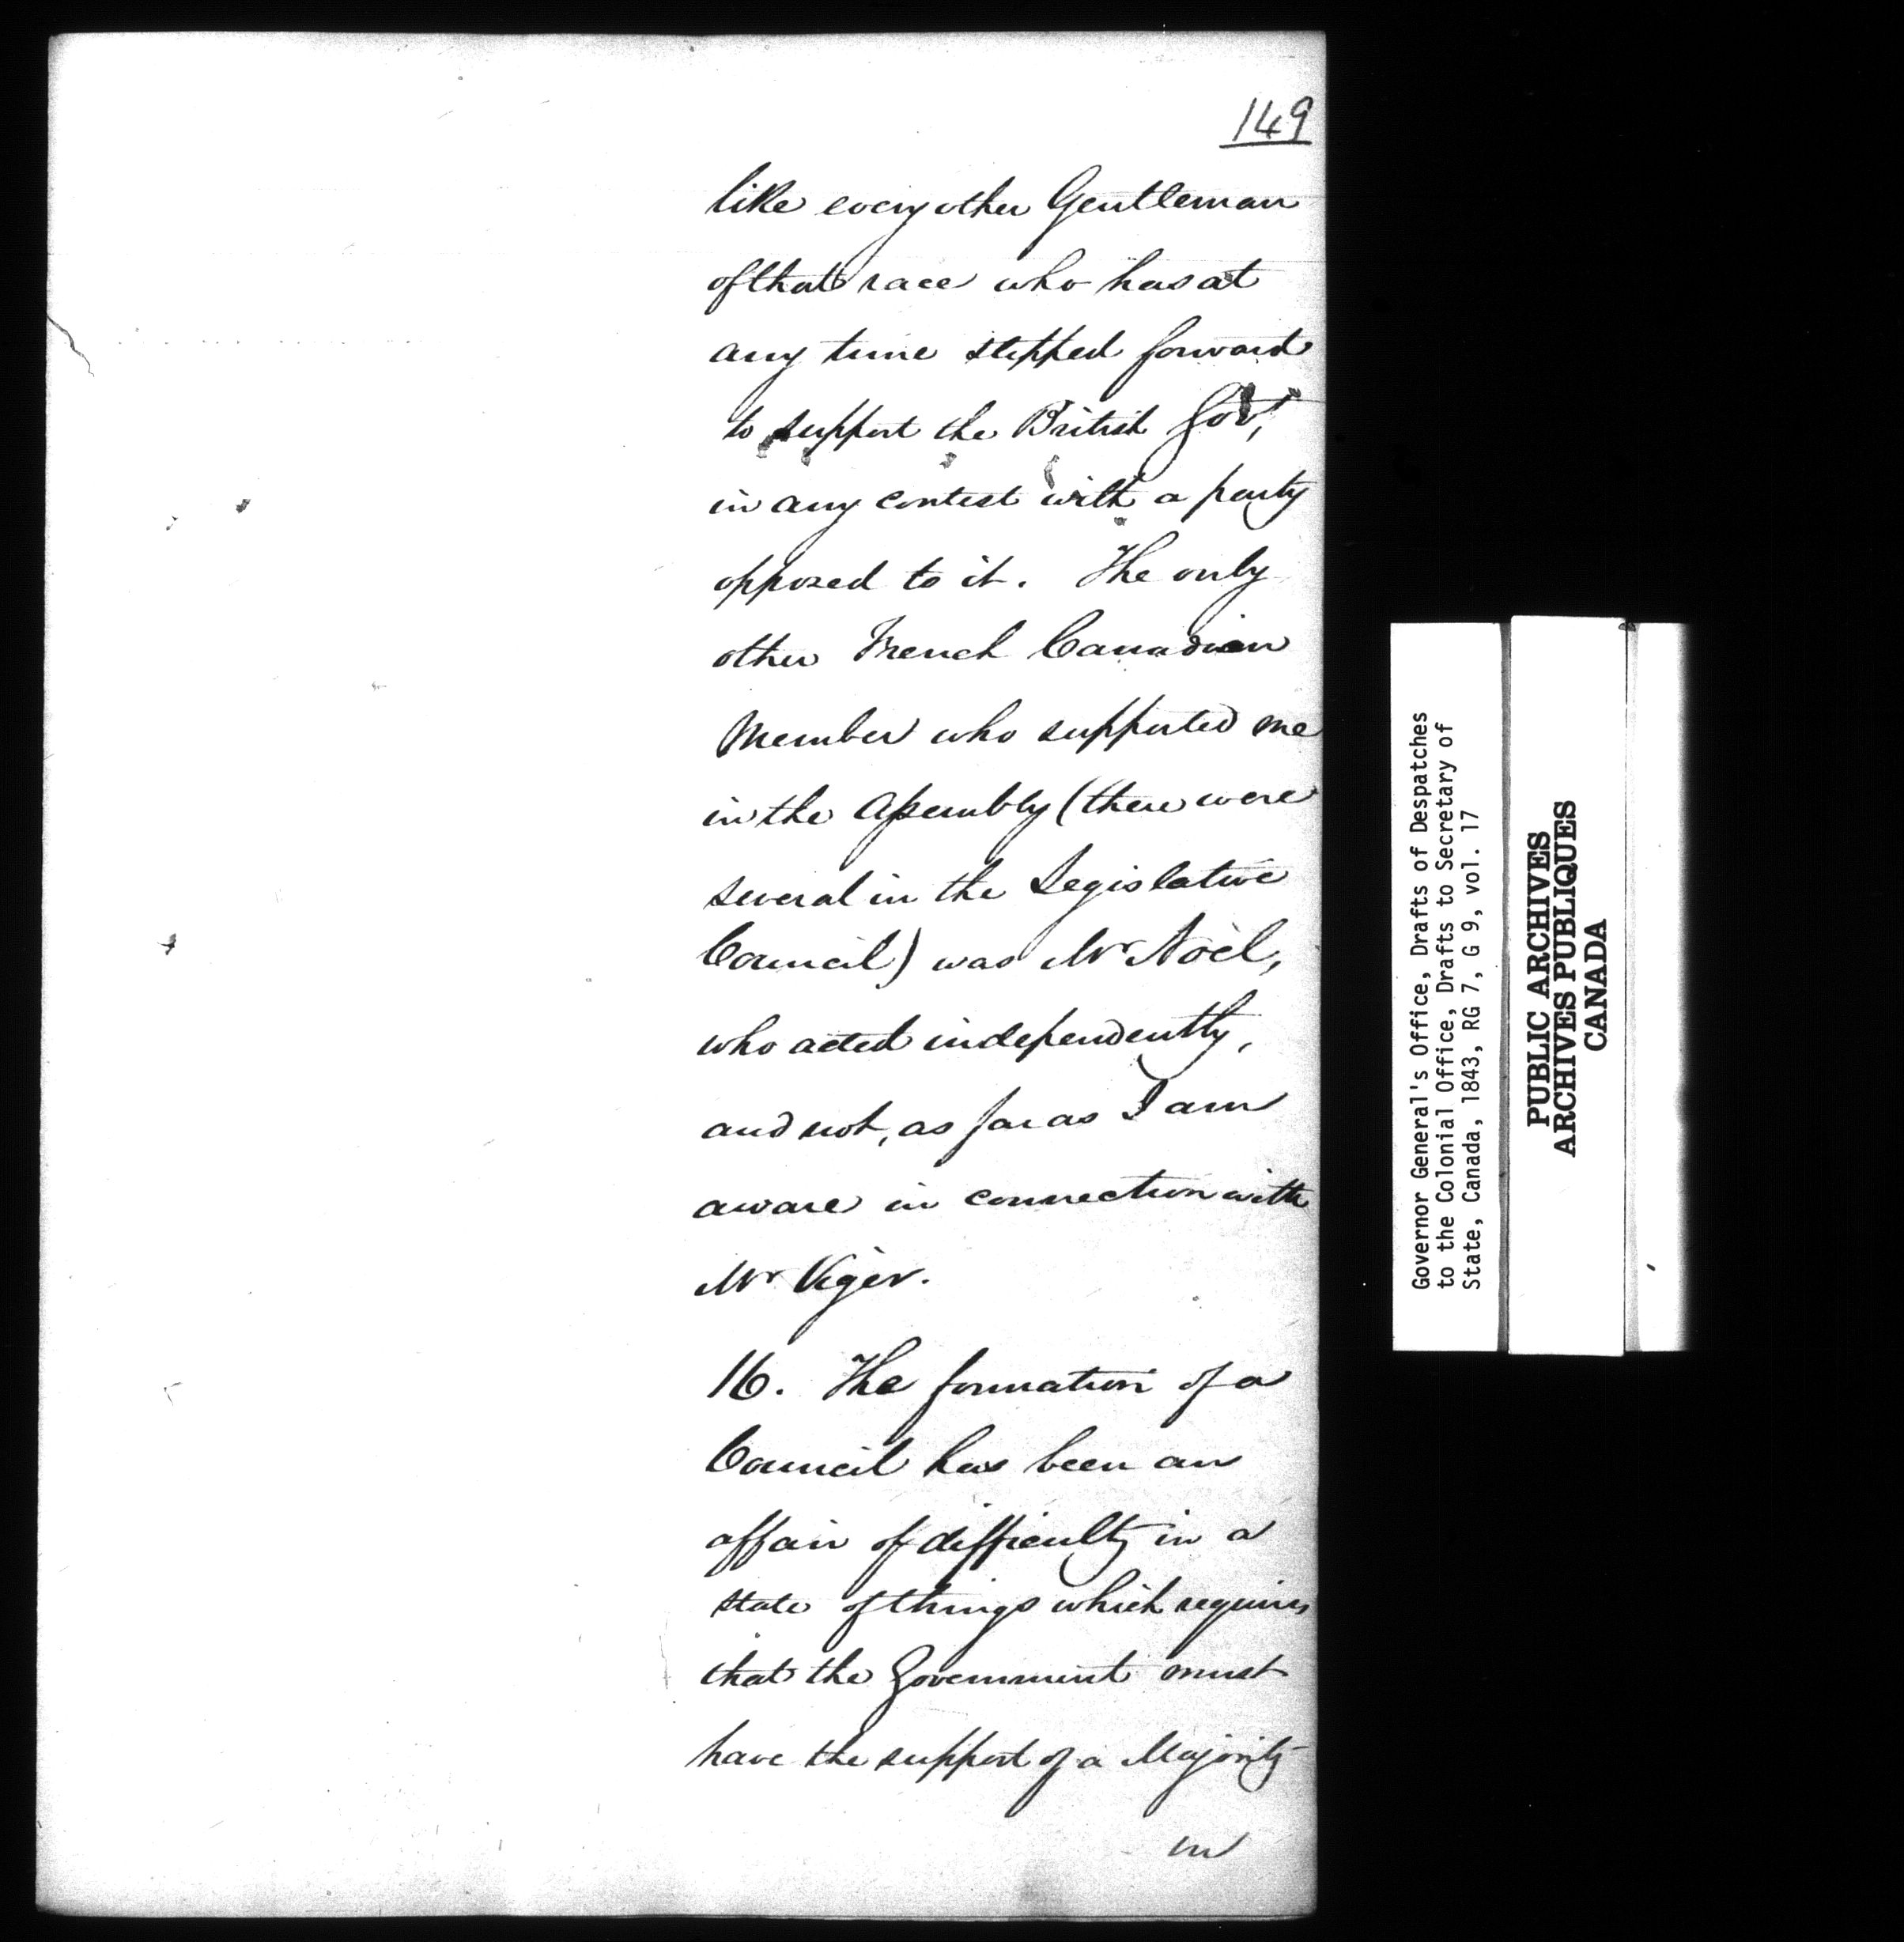 149
like every other Gentleman
of that race who has at
any time stepped forward
to support the British Govt,
in any contest with a party
opposed to it. The only
other French Canadian
Member who supported me
in the Assembly (there were
several in the Legislative
Council) was Mr Noël,
who acted independently,
and not, as far as I am
aware in connection with
Mr Viger.
16. The formation of a
Council has been an
affair of difficulty in a
state of things which requires
that the Government must
have the support of a Majority
in
Governor General's Office, Drafts of Despatches
to the Colonial Office, Drafts to Secretary of
State, Canada, 1843, RG 7, G 9, vol. 17
PUBLIC ARCHIVES
ARCHIVES PUBLIQUES
CANADA